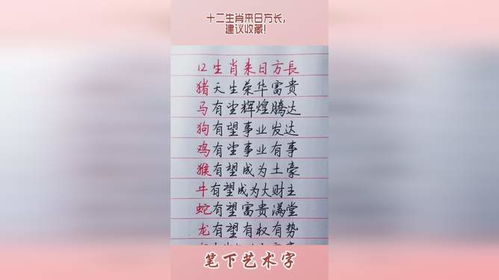 十二生肖来日方长,
建议收藏!
12生肖来日方長
猪天生荣华富贵
马有望辉煌腾达
狗有望事业发达
鸡有望事业有事
猴有望成为土豪
牛有望成为大财主
蛇有望富贵满堂
龙有望有权有势
笔下艺术字